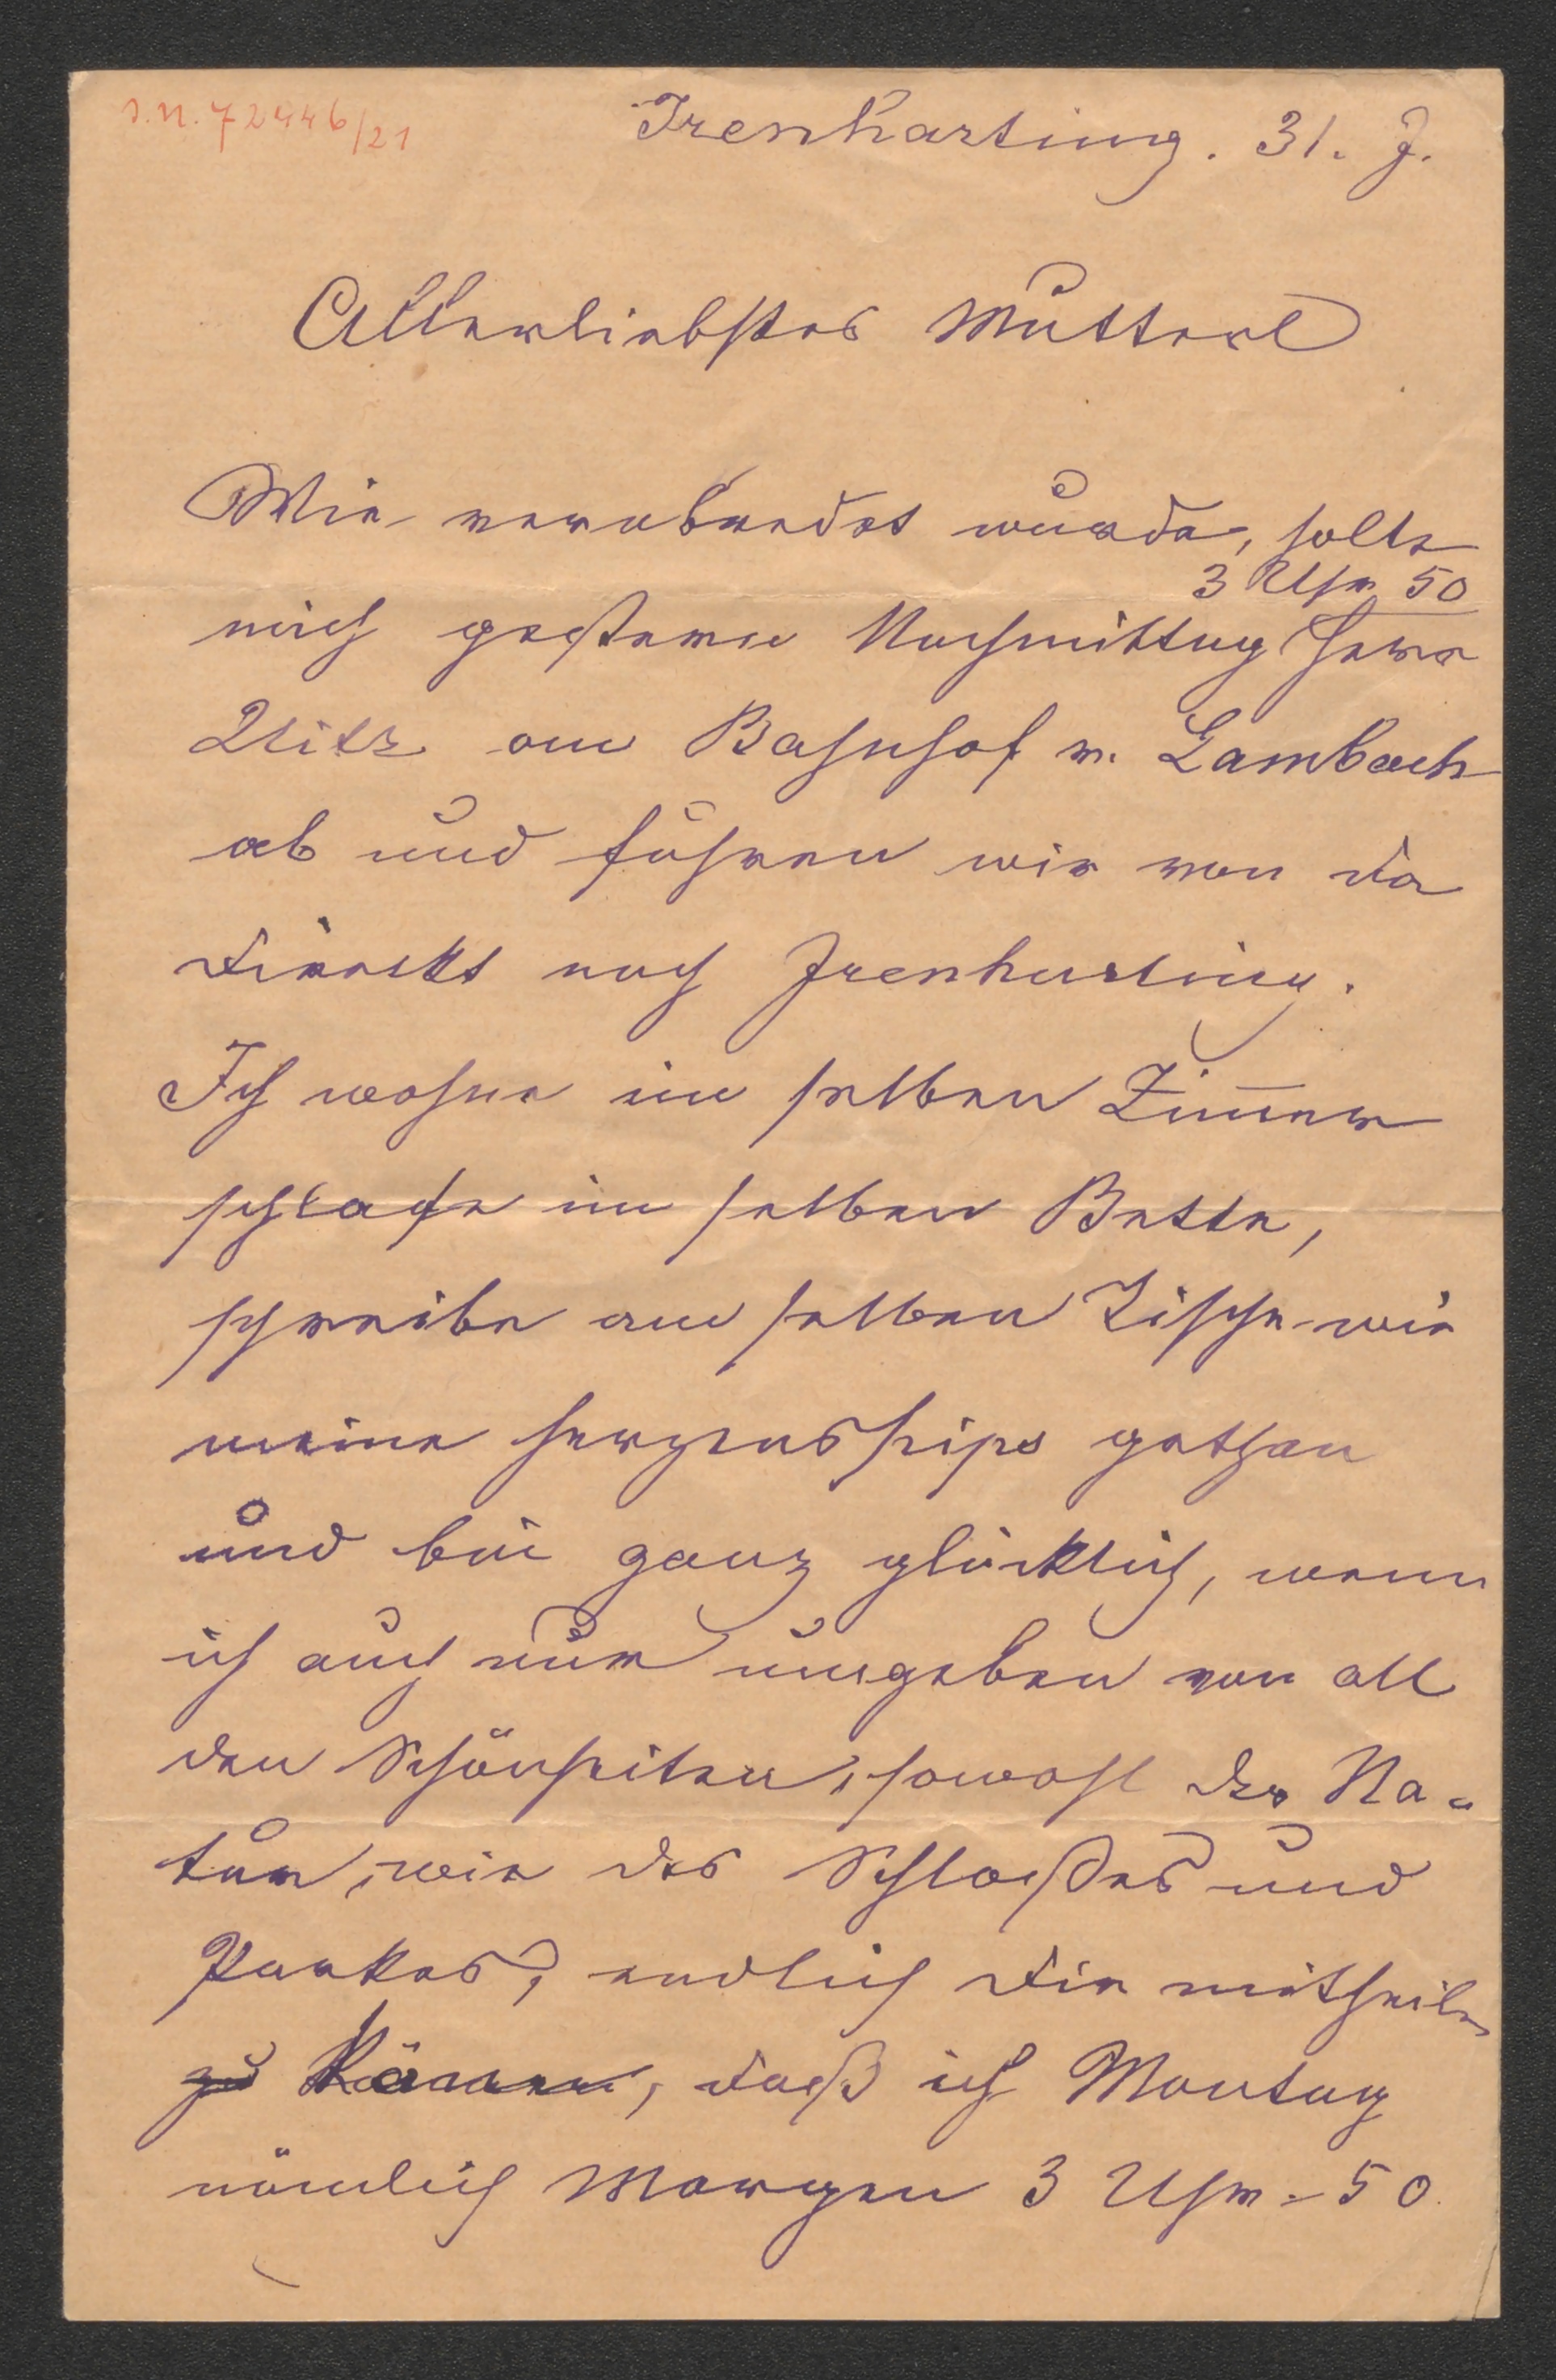 I.N. 72446/21
Irenharting. 31. J.
Allerliebstes Mutterl
Wie verabredet wurde, holte
3 Uhr 50
mich gestern Nachmittag Herr
am Bahnhof v. Lambach
ab und fuhren wir von da
direckt nach Irenharting.
Ich wohne im selben Zim̅er
schlafe im selben Bette,
schreibe am selben Tische wie
meine gethan
und bin ganz glücklich, wenn
ich auch nun umgeben von all
den Schönheiten, sowohl der Na-
tur, wie des Schloßes und
Parkes, endlich dir mittheile
zu können, daß ich Montag
nämlich Morgen 3 Uhr - 50